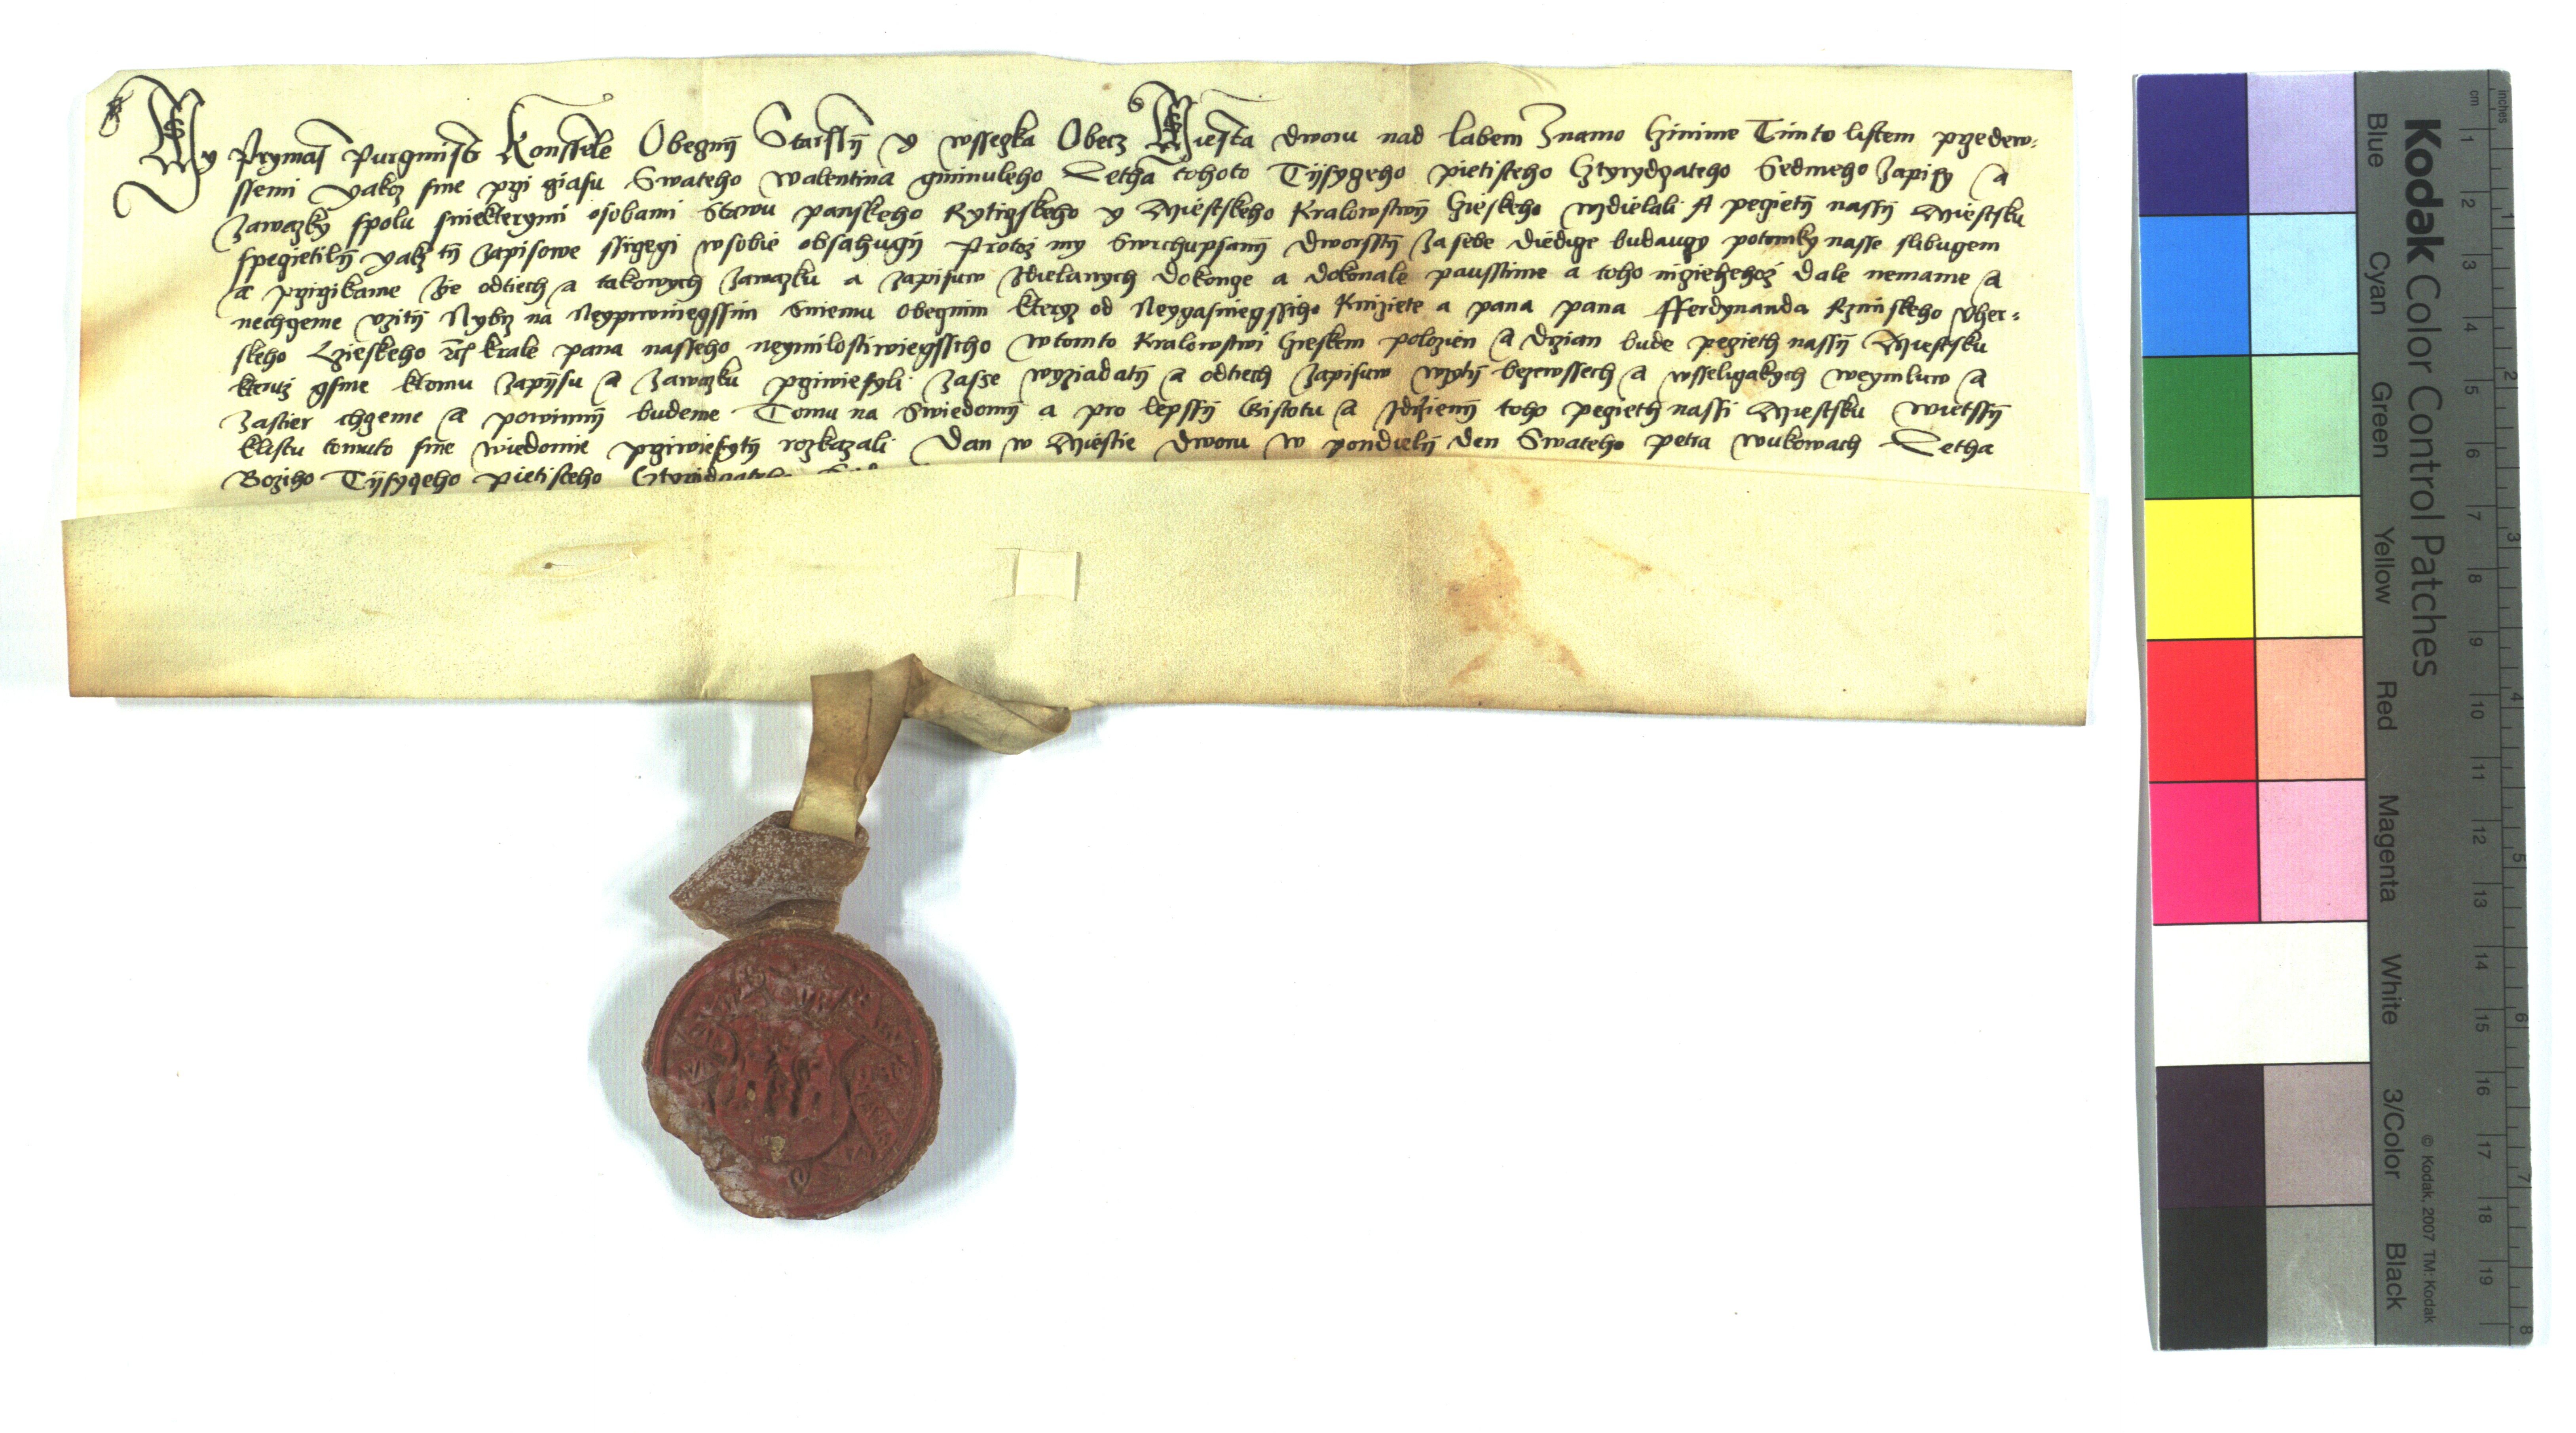 My Prymas Purgmistr Konssele Obegnij Starssij y wssegka Obecz Miesta dworu nad labem Znamo Czinime Timto listem przedew-
ssemi yakoz sme przi cziasu Swateho walentina gminuleho Letha tohoto Tijsyczeho pietisteho Cztyrydczateho Sedmeho Zapisy a
Zawazky spolu sniekterymi osobami Stawu panskeho Rytirzskeho y Miestskeho Kralowstwij Czieskeho wzdielali A peczietij nassij Miestsku
speczietilij yakz tij Zapisowe ssirzegi wsobie obsahugij Protoz my Swrchupsanij Dworsstij Za sebe diedicze budauczy potomky nasse slibugem
a przirzikame Ze odtiech a takowych Zawazku a Zapisuw Zdielanych dokoncze a dokonale paustime a toho nicziehehoz dale nemame a
nechczeme vzitij Nybrz na Neyprwniegssim Sniemu obecznim kteryz od Neygasniegssiho Knizete a pana pana Fferdynanda Rzimskeho Vher-
skeho Czieskeho etc krale pana nasseho neymilostiwiegssiho wtomto Kralowstwi Czieskem polozien a drzian bude peczieth nassij Miestsku
kteruz gsme ktomu Zapijsu a Zawazku przwiesyli Zasse wyziadatij a odtiech Zapisuw wzytij bezewssech a wsseligakych weymluw a
Zastier chczeme a powinnij budeme Tomu na Swiedomij a pro lepssij Gistotu a Zdrzienij toho peczieth nassi Miestsku wietssij
klistu tomuto sme wiedomie przwiesytij rozkazali Dan w Miestie Dworu w pondielij den Swateho petra wukowach Letha
Boziho Tijsyczeho pietisteho Cztyridczateho
Kodak Color Control Patches
© Kodak, 2007 TM: Kodak
Blue Cyan Green Yellow Red Magenta White 3/Color Black
inches 1 2 3 4 5 6 7 8
cm 1 2 3 4 5 6 7 8 9 10 11 12 13 14 15 16 17 18 19